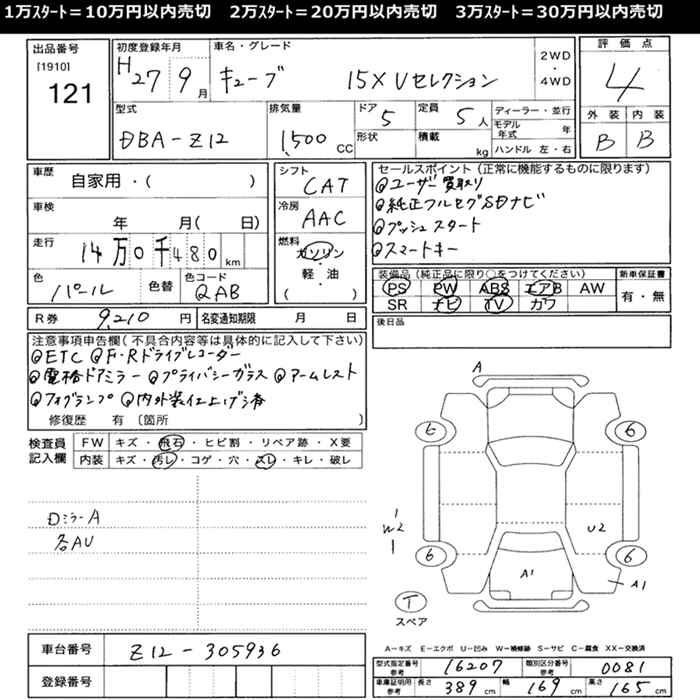 1万スタート＝10万円以内売切　2万スタート＝20万円以内売切　3万スタート＝30万円以内売切
出品番号
[1910]
121
初度登録年月
H27 9月
車名・グレード
キューブ　15X Vセレクション
2WD
・
4WD
評価点
4
外装 内装
B B
型式
DBA-Z12
排気量
1,500 CC
ドア
5
定員
5人
形状
積載
kg
ディーラー・並行
モデル年式 年
ハンドル 左・右
車歴
自家用・( )
車検
年 月( 日)
走行
14万0千480 km
色
パール
色替
色コード
QAB
シフト
CAT
冷房
AAC
燃料
ガソリン
・
軽・油
( )
セールスポイント(正常に機能するものに限ります)
◎ユーザー買取り
◎純正フルセグSDナビ
◎プッシュスタート
◎スマートキー
装備品(純正品に限り○をつけてください)
PS PW ABS エアB AW
SR ナビ TV カワ
新車保証書
有・無
R券 9,210 円 名変通知期限 月 日
後日品
注意事項申告欄(不具合内容等は具体的に記入して下さい)
◎ETC ◎F・Rドライブレコーダー
◎電格ドアミラー ◎プライバシーガラス ◎アームレスト
◎フォグランプ ◎内外装仕上げ済
修復歴 有 〔箇所 〕
検査員記入欄
FW キズ・飛石・ヒビ割・リペア跡・X要
内装 キズ・汚レ・コゲ・穴・スレ・キレ・破レ
DミラーA
各AU
A
6 6
W2
U2
6 6
A1
A1
T
スペア
A－キズ E－エクボ U－凹み W－補修跡 S－サビ C－腐食 XX－交換済
車台番号 Z12-305936
登録番号
型式指定番号 参考 16207 類別区分番号 参考 0081
車庫証明用 参考 長さ 389 cm 幅 169 cm 高さ 165 cm